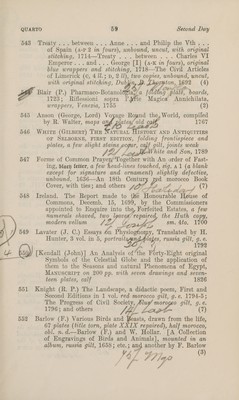 QUARTO 59 Second Day
543 Treaty . . . between . . . Anne . . . and Philip the Vth . . .
of Spain (A-F 2 in fours), unbound, uncut, with original
stitching, 1714—Treaty . . . between . . . Charles VI
Emperor . . . and . . . George [I] (A-G in fours), original
blue wrappers and stitching, 1718—The Civil Articles
of Limerick
Blair (P.) Pharmaco-Botanologia
1723; Riflessioni sopra
wrappers, Venezia, 1755 (2)
545 Anson (George, Lord) Voyage Round the World, compiled
by R. Walter, maps and plates, old calf 1767
546 WHITE (GILBERT) THE NATURAL HISTORY AND ANTIQUITIES
OF SELBORNE, FIRST EDITION, folding frontispiece and
plates, a few slight stains, calf gilt, joints weak
White and Son, 1789
547 Forms of Common Prayer, Together with An order of Fast-
ing, black letter, a few head-lines touched, sig. A 1 (a blank
except for signature and ornament) slightly defective,
unbound, 1636—An 18th Century red morocco Book
Cover, with ties; and others (7)
548 Ireland. The Report made to the Honourable House of
Commons, Decemb. 15, 1699, by the Commissioners
appointed to Enquire into the Forfeited Estates, a few
numerals shaved, two leaves repaired, the Huth copy,
modern vellum sm. 4to, 1700
549 Lavater (J. C.) Essays on Physiognomy, Translated by H.
Hunter, 3 vol. in 5, portraits and plates, russia gilt, g. e.
1792
550 [Kendall (John)] An Analysis of the Forty-Eight original
Symbols of the Celestial Globe and the application of
them to the Seasons and natural Phenomena of Egypt,
MANUSCRIPT on 200 pp. with seven drawings and seven-
teen plates, calf 1826
551 Knight (R. P.) The Landscape, a didactic poem, First and
Second Editions in 1 vol. red morocco gilt, g. e. 1794-5;
The Progress of Civil Society, blue morocco gilt, g. e.
1796; and others (7)
552 Barlow (F.) Various Birds and Beasts, drawn from the life,
67 plates (title torn, plate XXIX repaired), half morocco,
obl. n. d.—Barlow (F.) and W. Hollar. [A Collection
of Engravings of Birds and Animals], mounted in an
album, russia gilt, 1658; etc.; and another by F. Barlow
(3)